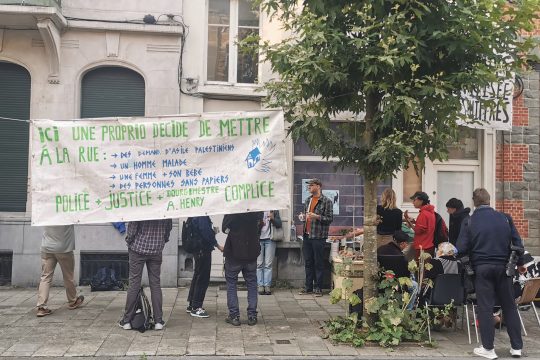 iCi UNE PROPRIO DECIDE DE METTRE
Á LA RUE :
→ DES DEMAND. D'ASILE PALESTINIENS
→ UN HOMME MALADE
→ UNE FEMME + SON BEBE
→ DES PERSONNES SANS PAPIERS
POLICE + JUSTICE + BOURGMESTRE COMPLICE
A. HENRY